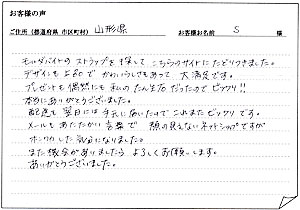 お客様の声
ご住所（都道府県 市区町村） 山形県 お客様お名前 S 様
モルダバイトのストラップを探して こちらのサイトにたどりつきました。
デザインも よくて かわいらしさもあって 大満足です。
プレゼントも 偶然にも 私のたん生石だったので ビックリ!!
本当に ありがとうございました。
配送も 翌日には 手元に届いたので これまたビックリです。
メールも あたたかい 言葉で 顔の見えない ネットショップですが
ホンワカした気分になりました。
また機会がありましたら よろしくお願いします。
ありがとうございました。